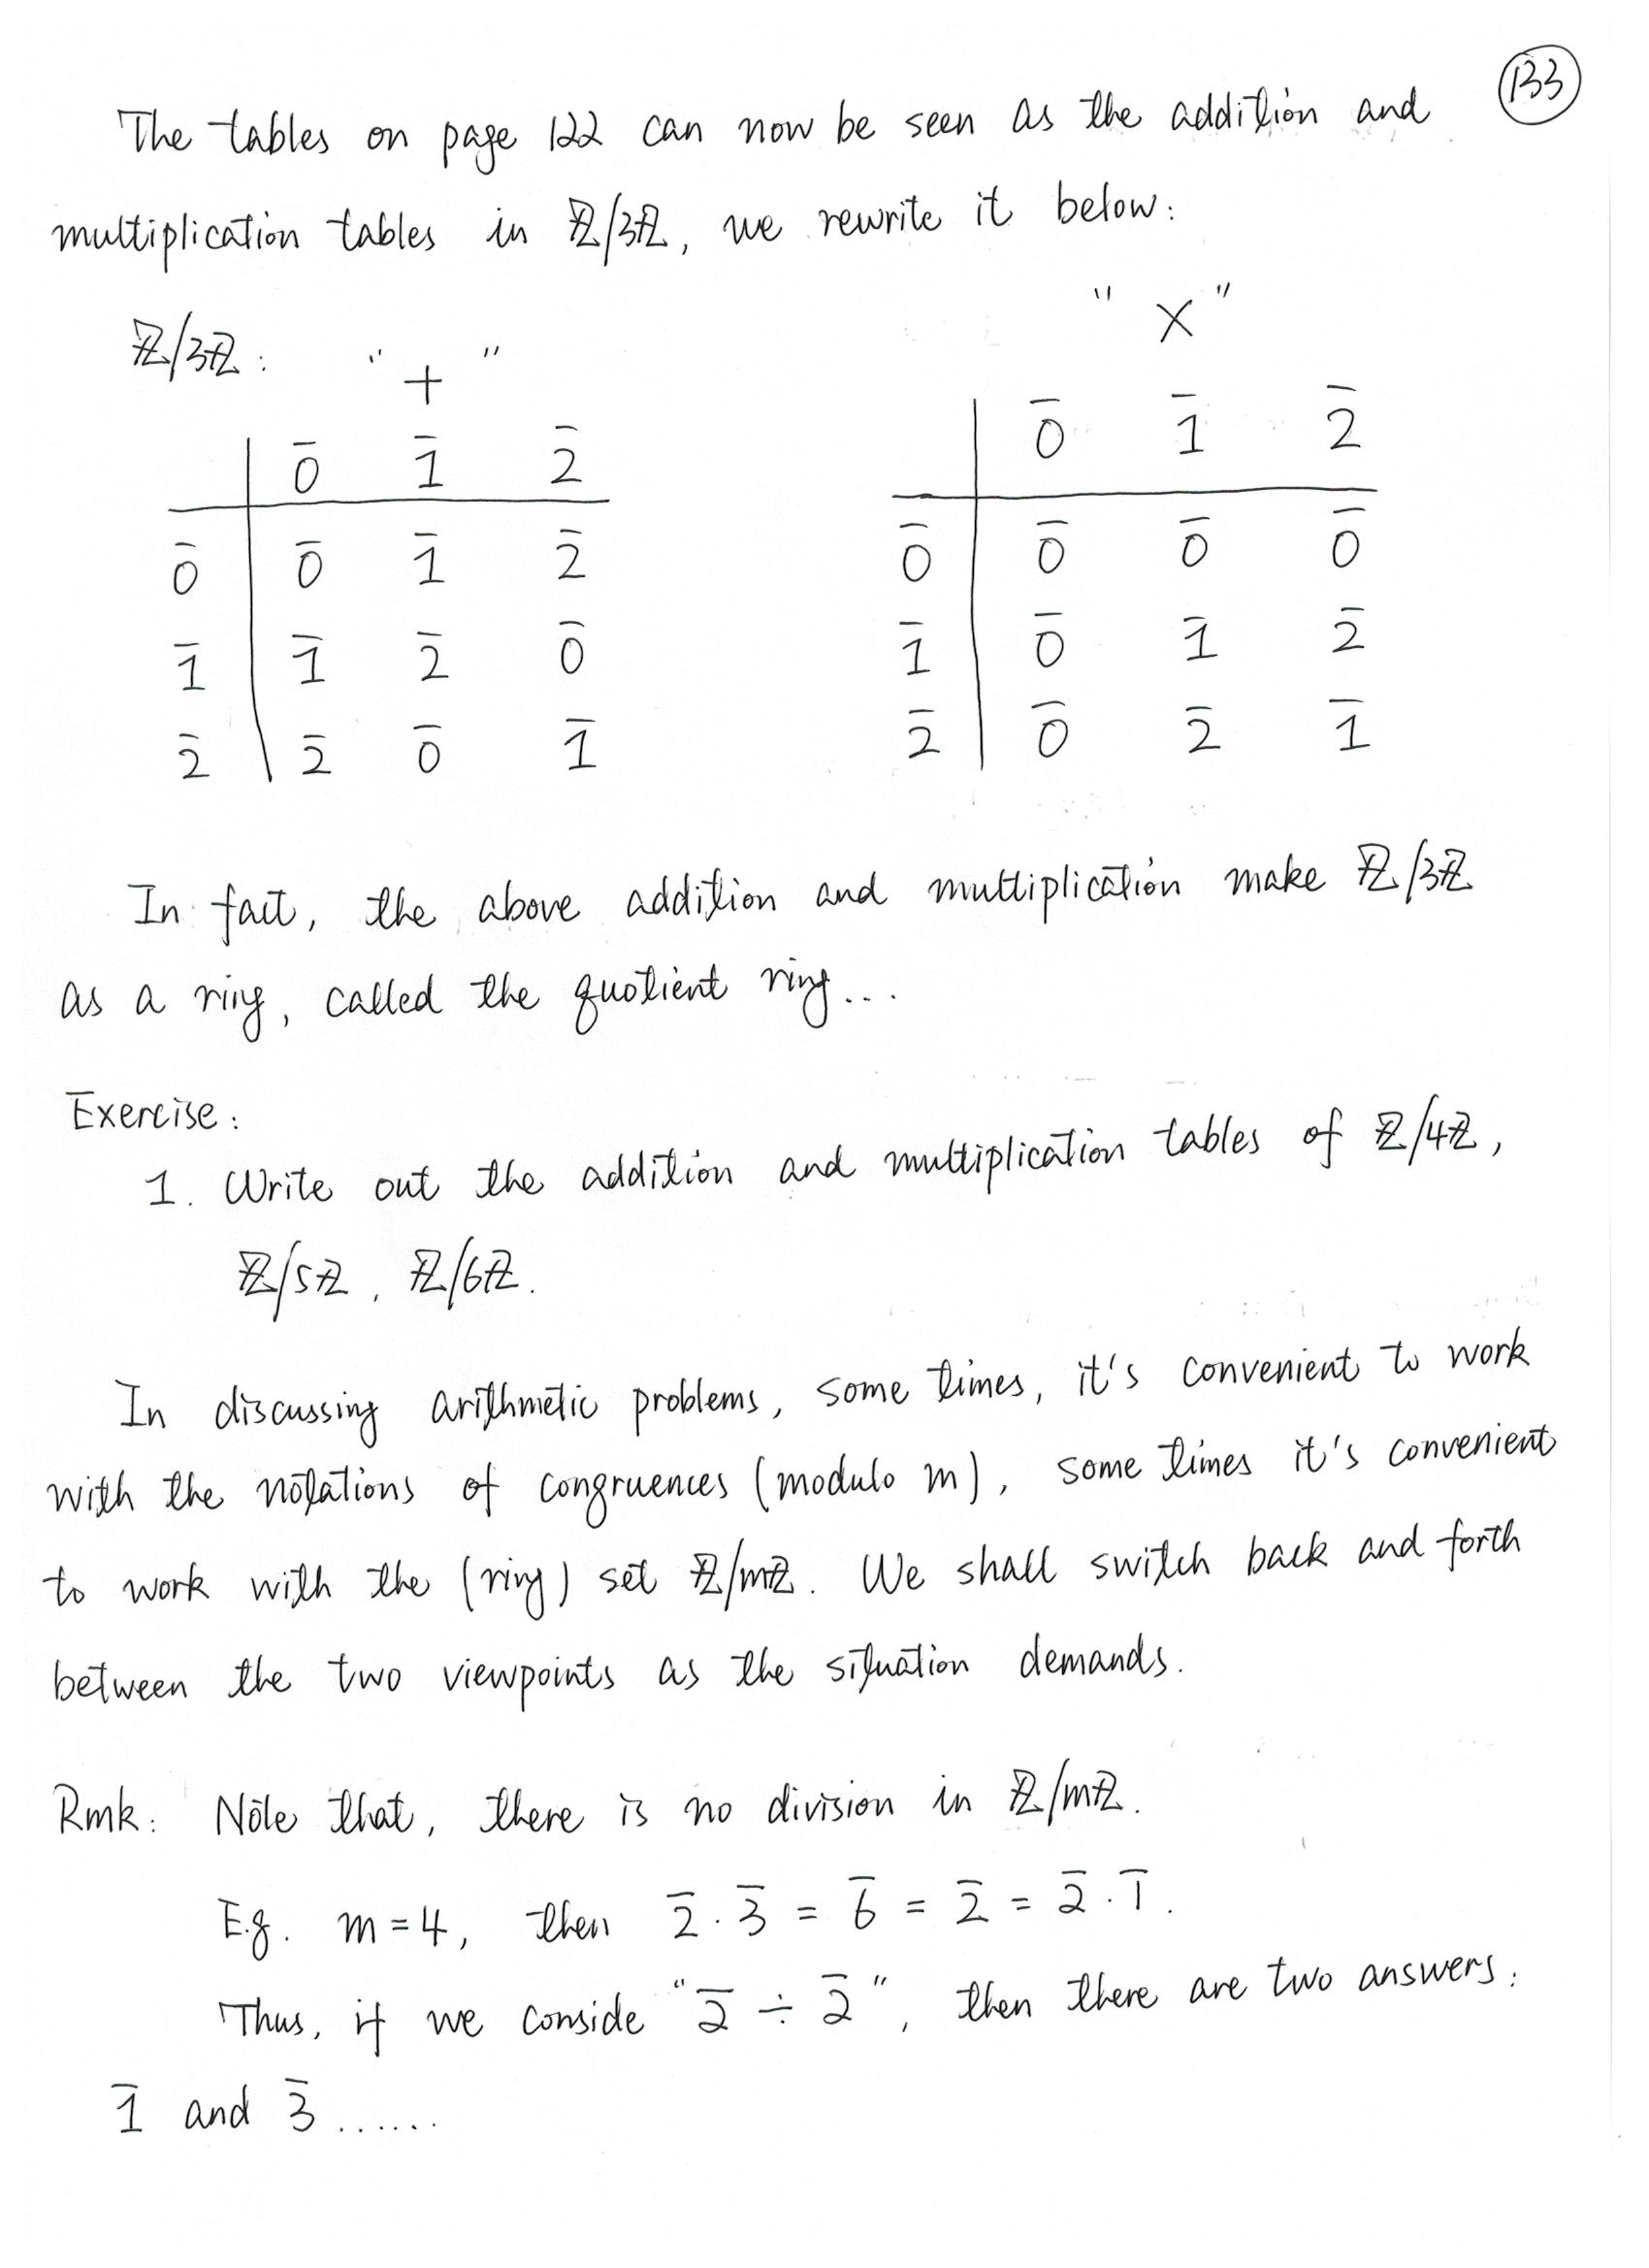 133
The tables on page 122 can now be seen as the addition and
multiplication tables in ℤ/3ℤ, we rewrite it below:
ℤ/3ℤ: "+" "×"
0̄ 1̄ 2̄ 0̄ 1̄ 2̄
0̄ 0̄ 1̄ 2̄ 0̄ 0̄ 0̄ 0̄
1̄ 1̄ 2̄ 0̄ 1̄ 0̄ 1̄ 2̄
2̄ 2̄ 0̄ 1̄ 2̄ 0̄ 2̄ 1̄
In fact, the above addition and multiplication make ℤ/3ℤ
as a ring, called the quotient ring...
Exercise:
1. Write out the addition and multiplication tables of ℤ/4ℤ,
ℤ/5ℤ, ℤ/6ℤ.
In discussing arithmetic problems, some times, it's convenient to work
with the notations of congruences (modulo m), some times it's convenient
to work with the (ring) set ℤ/mℤ. We shall switch back and forth
between the two viewpoints as the situation demands.
Rmk: Note that, there is no division in ℤ/mℤ.
E.g. m=4, then 2̄·3̄ = 6̄ = 2̄ = 2̄·1̄.
Thus, if we conside "2̄ ÷ 2̄", then there are two answers:
1̄ and 3̄......